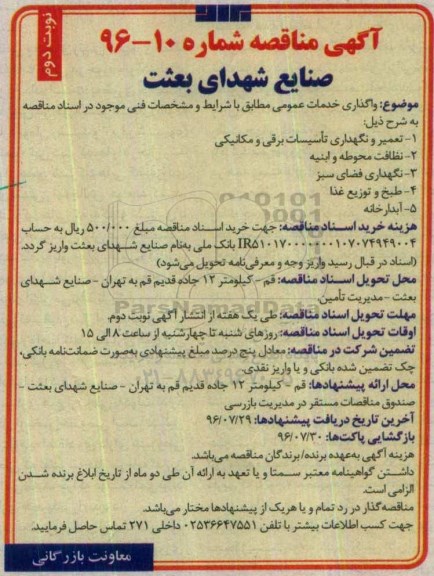 نوبت دوم
آگهی مناقصه شماره ۱۰-۹۶
صنایع شهدای بعثت
موضوع: واگذاری خدمات عمومی مطابق با شرایط و مشخصات فنی موجود در اسناد مناقصه
به شرح ذیل:
۱- تعمیر و نگهداری تأسیسات برقی و مکانیکی
۲- نظافت محوطه و ابنیه
۳- نگهداری فضای سبز
۴- طبخ و توزیع غذا
۵- آبدارخانه
هزینه خرید اسناد مناقصه: جهت خرید اسناد مناقصه مبلغ ۵۰۰/۰۰۰ ریال به حساب
بانک ملی به‌نام صنایع شهدای بعثت واریز گردد.
(اسناد در قبال رسید واریز وجه و معرفی‌نامه تحویل می‌شود)
محل تحویل اسناد مناقصه: قم - کیلومتر ۱۲ جاده قدیم قم به تهران - صنایع شهدای
بعثت - مدیریت تأمین
مهلت تحویل اسناد مناقصه: طی یک هفته از انتشار آگهی نوبت دوم.
اوقات تحویل اسناد مناقصه: روزهای شنبه تا چهارشنبه از ساعت ۸ الی ۱۵
تضمین شرکت در مناقصه: معادل پنج درصد مبلغ پیشنهادی به‌صورت ضمانت‌نامه بانکی،
چک تضمین شده بانکی و یا واریز نقدی
محل ارائه پیشنهادها: قم - کیلومتر ۱۲ جاده قدیم قم به تهران - صنایع شهدای بعثت -
صندوق مناقصات مستقر در مدیریت بازرسی
آخرین تاریخ دریافت پیشنهادها: ۹۶/۰۷/۲۹
بازگشایی پاکت‌ها: ۹۶/۰۷/۳۰
هزینه آگهی به‌عهده برنده/برندگان مناقصه می‌باشد.
داشتن گواهینامه معتبر سمتا و یا تعهد به ارائه آن طی دو ماه از تاریخ ابلاغ برنده شدن
الزامی است.
مناقصه‌گذار در رد تمام و یا هریک از پیشنهادها مختار می‌باشد.
جهت کسب اطلاعات بیشتر با تلفن ۰۲۵۳۶۶۴۷۵۵۱ داخلی ۲۷۱ تماس حاصل فرمایید.
معاونت بازرگانی